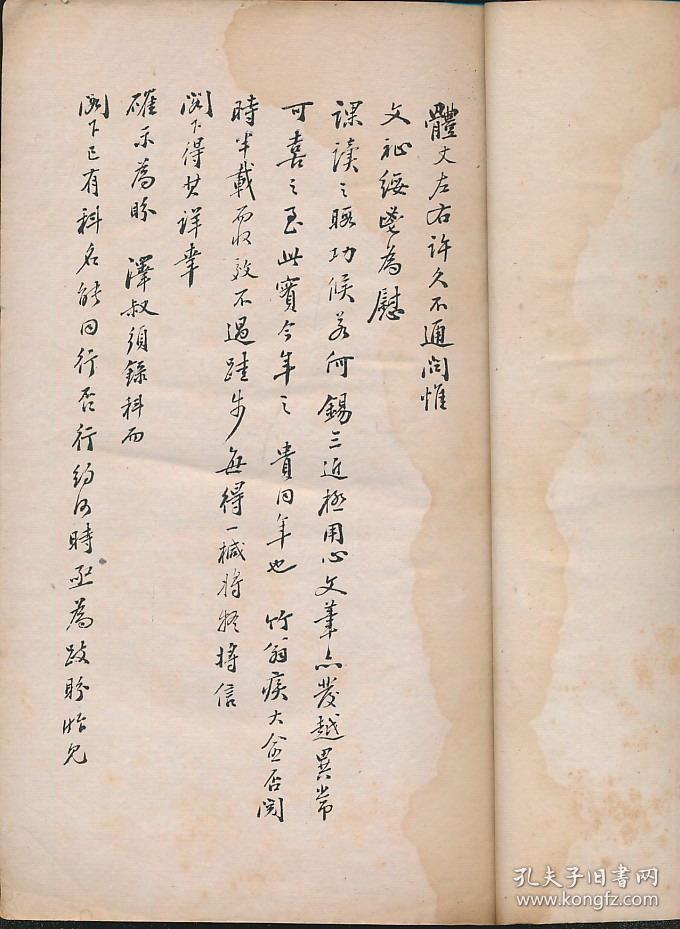 體丈左右許久不通問惟
文祉綏邕為慰
課讀之暇功候若何錫三近極用心文筆亦發越異常
可喜之至此實今年之貴同年也竹翁疾大愈否閱
時半載而收效不過跬步每得一椷將疑將信
閣下得其詳幸
確示為盼澤叔須錄科而
閣下已有科名能同行否行約何時亟為跂盼怡兒
孔夫子旧书网
www.kongfz.com